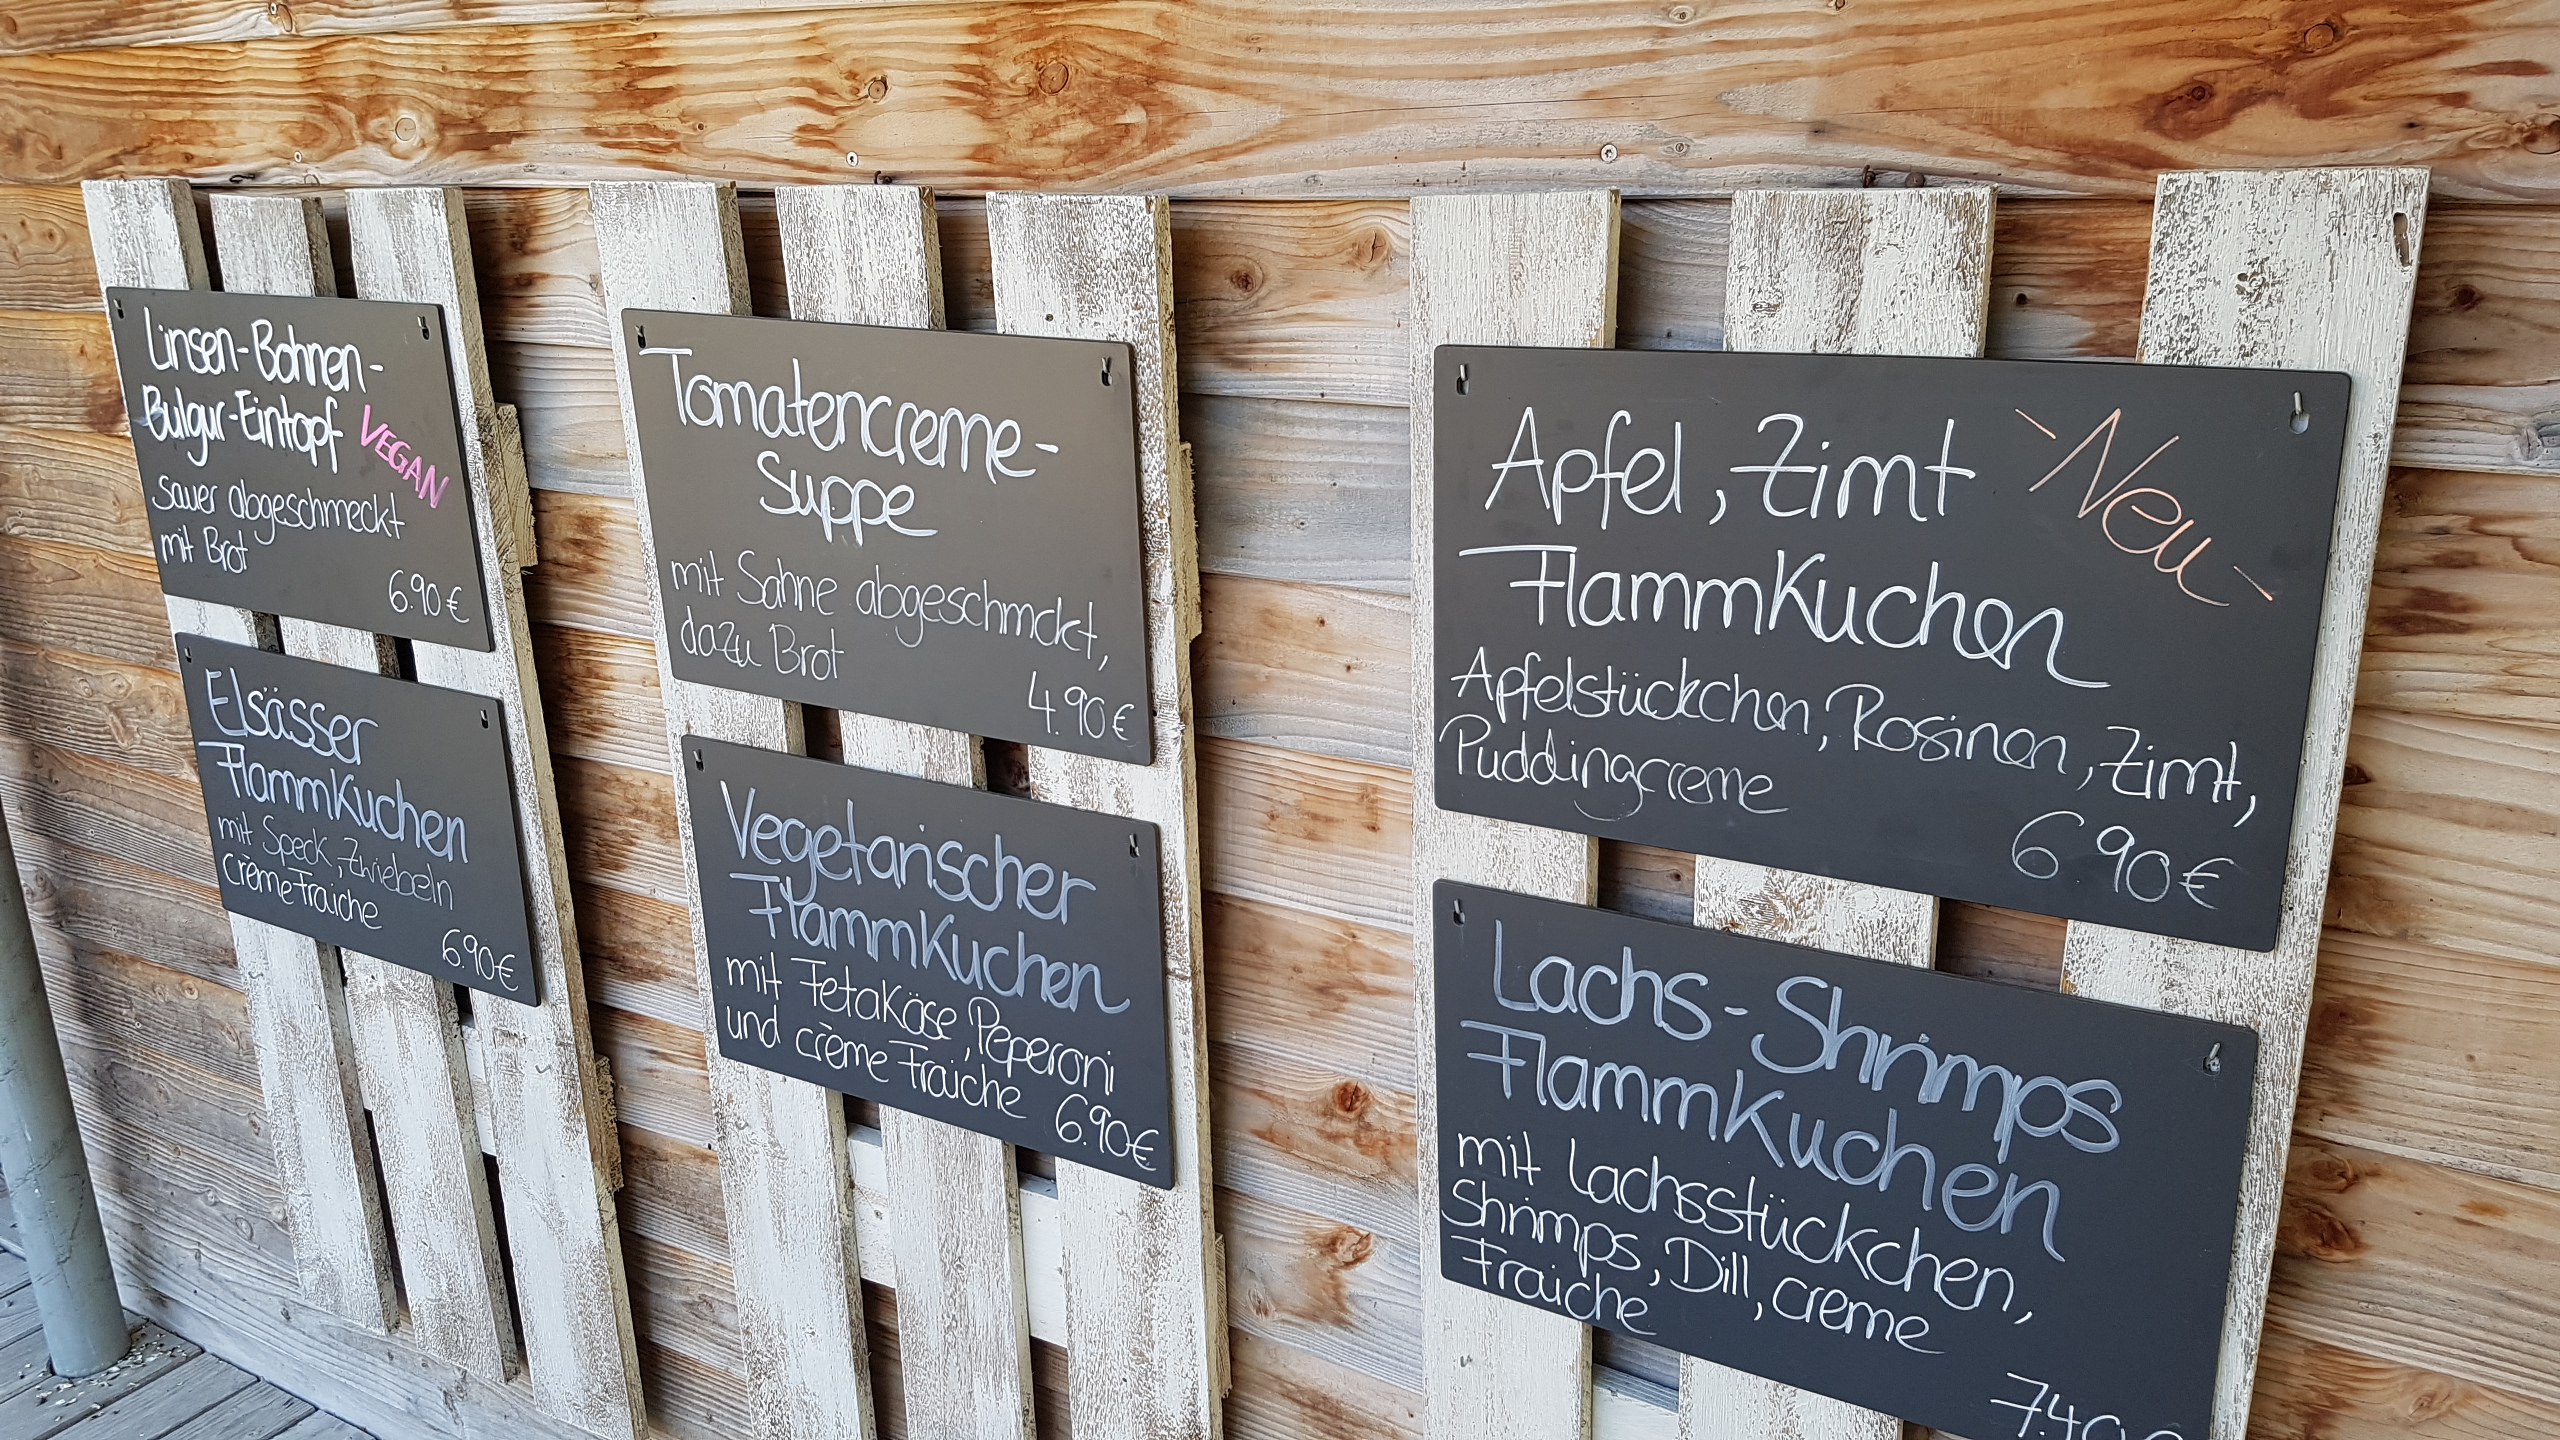 Linsen-Bohnen-
Bulgur-Eintopf
VEGAN
sauer abgeschmeckt
mit Brot
6.90 €
Elsässer
Flammkuchen
mit Speck, Zwiebeln
crème Fraiche
6.90€
Tomatencreme-
suppe
mit Sahne abgeschmckt,
dazu Brot
4.90€
Vegetarischer
Flammkuchen
mit Fetakäse, Peperoni
und crème Fraiche
6.90€
Apfel, Zimt
-Neu-
Flammkuchen
Apfelstückchen, Rosinen, Zimt,
Puddingcreme
6.90€
Lachs-Shrimps
Flammkuchen
mit Lachsstückchen,
Shrimps, Dill, creme
Fraiche
7.40€